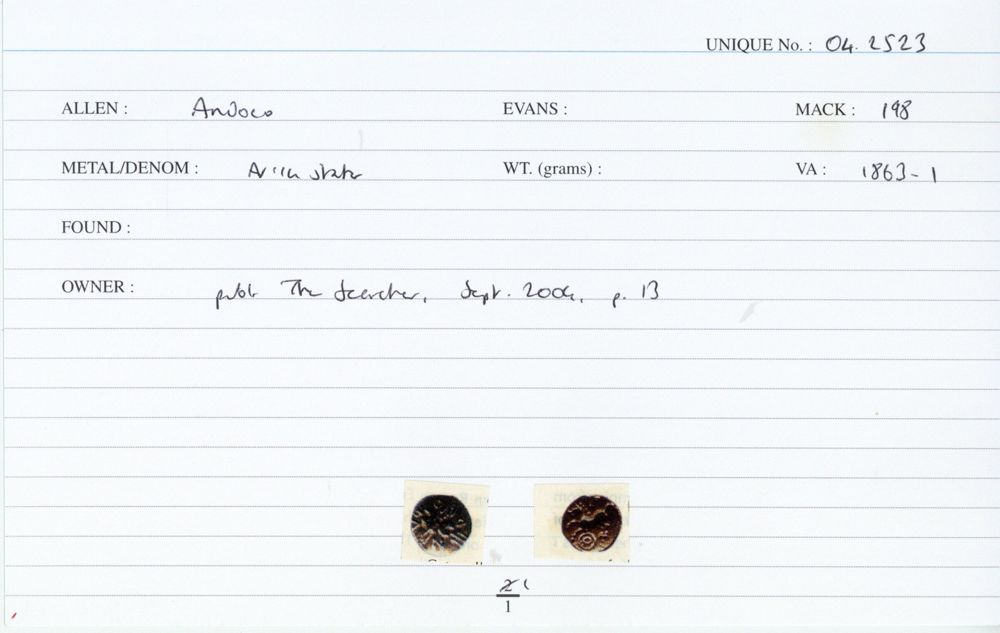 UNIQUE No. : 04. 2523
ALLEN : Andoco EVANS : MACK : 198
METAL/DENOM : stater WT. (grams) : VA : 1863-1
FOUND :
OWNER : publ The Searcher, Sept. 2004, p. 13
1